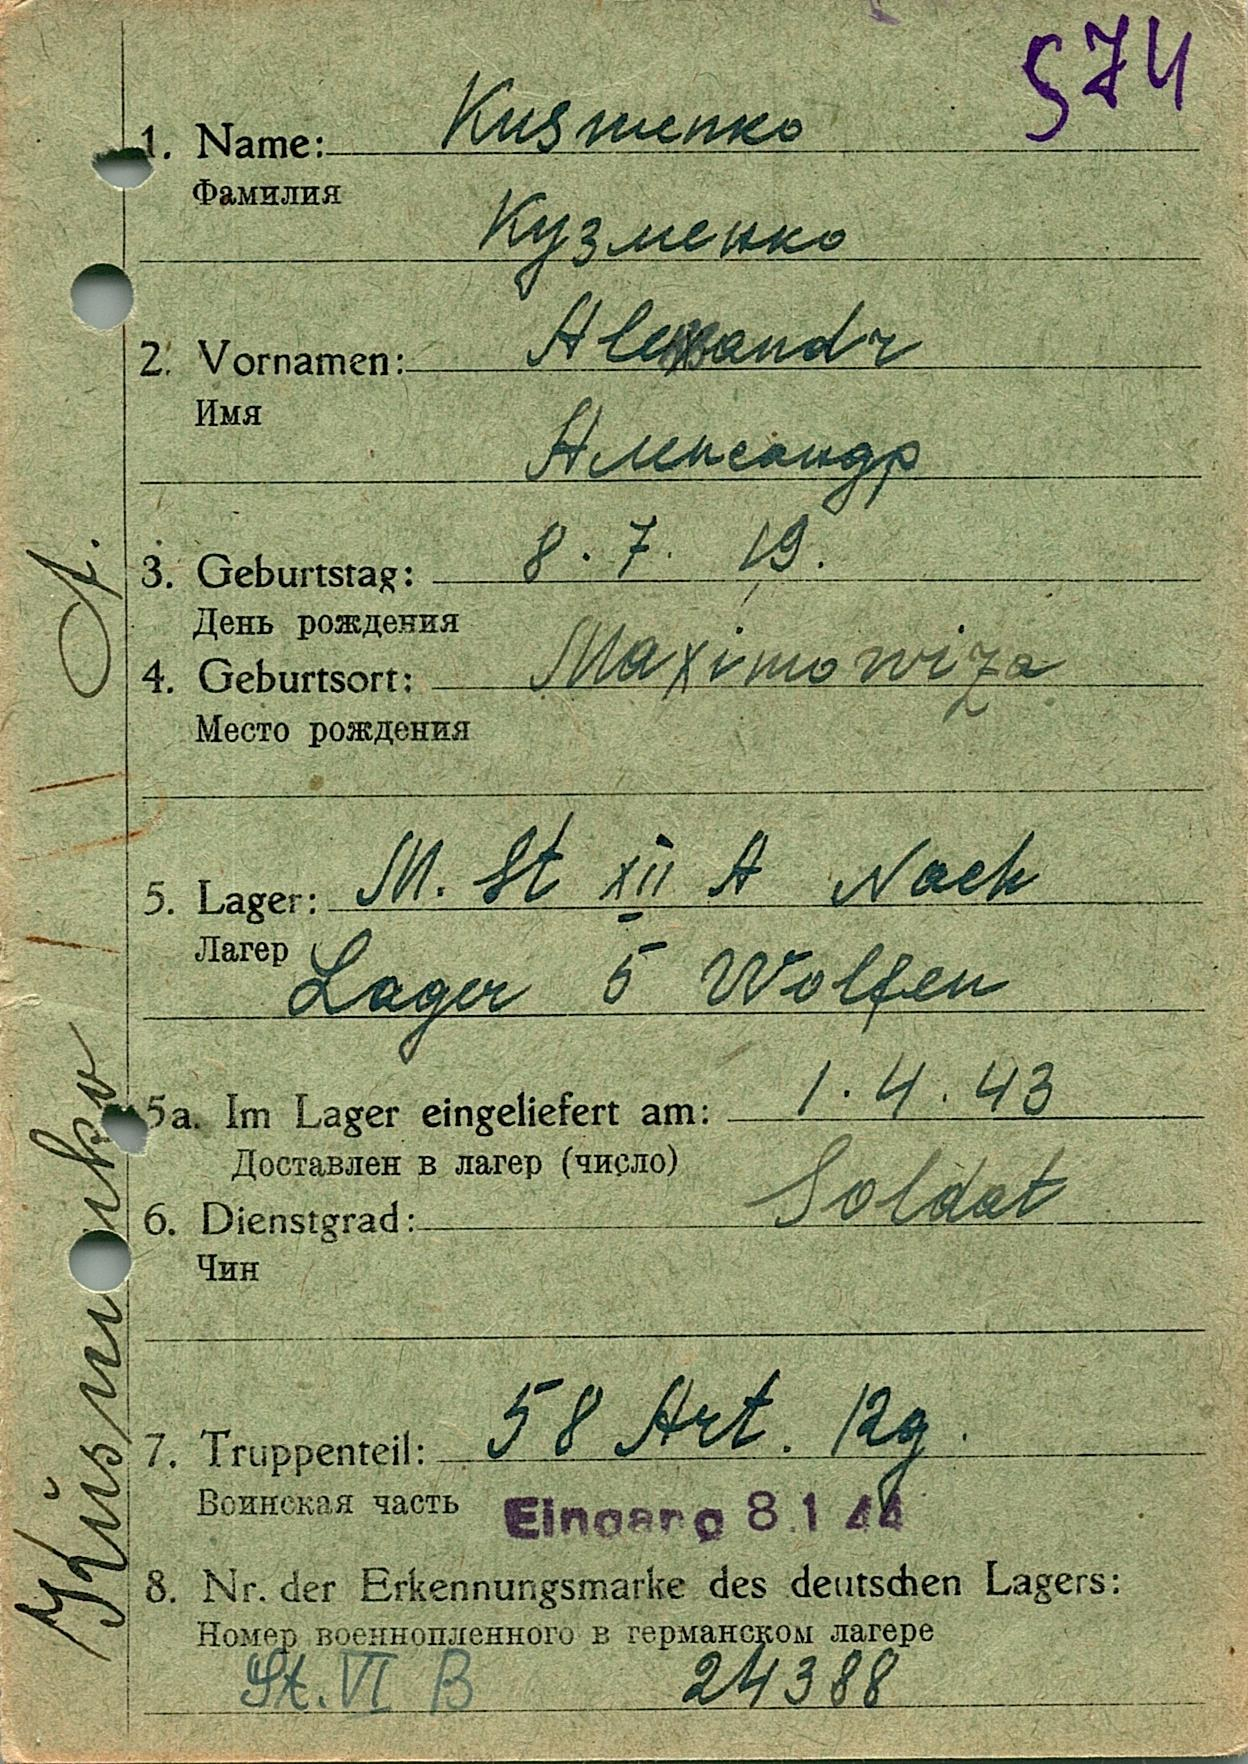 574
1. Name: Kusmenko
Фамилия
Кузменко
2. Vornamen: Alexandr
Имя
Александр
3. Geburtstag: 8. 7. 19.
День рождения
4. Geburtsort: Maximowiza
Место рождения
5. Lager: M. St XII A Nach
Лагер
Lager 5 Wolfen
5a. Im Lager eingeliefert am: 1. 4. 43
Доставлен в лагер (число)
6. Dienstgrad: Soldat
Чин
7. Truppenteil: 58 Art. Rg.
Воинская часть
Eingang 8.1 44
8. Nr. der Erkennungsmarke des deutschen Lagers:
Номер военнопленного в германском лагере
St. VI B 24388
Küsmenko A.